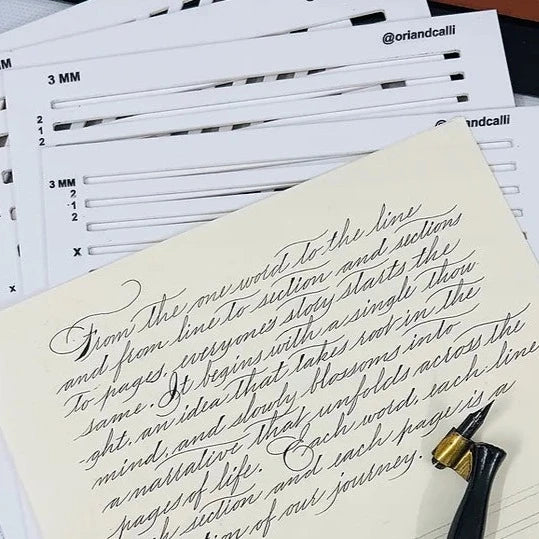 @oriandcalli
3 MM
2
1
2
3 MM
2
1
2
X
X
From the one word to the line
and from line to section and sections
to pages, everyone's story starts the
same. It begins with a single thou
-ght, an idea that takes root in the
mind, and slowly blossoms into
a narrative that unfolds across the
pages of life. Each word, each line
section and each page is a
of our journey.